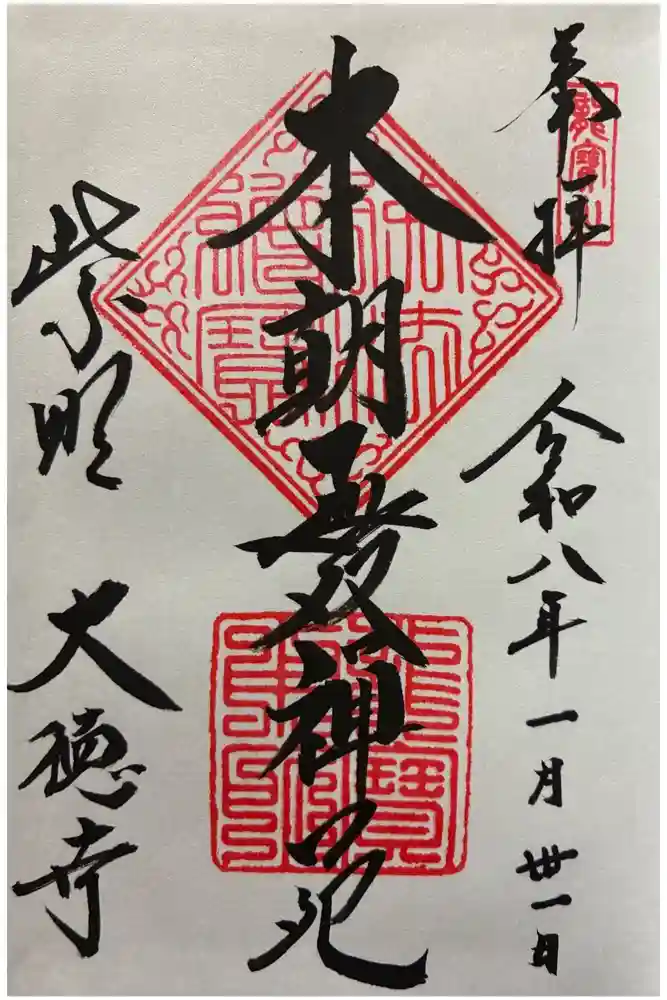 奉拝
龍寳山
令和八年一月卅一日
本朝無双禅苑
紫野 大徳寺